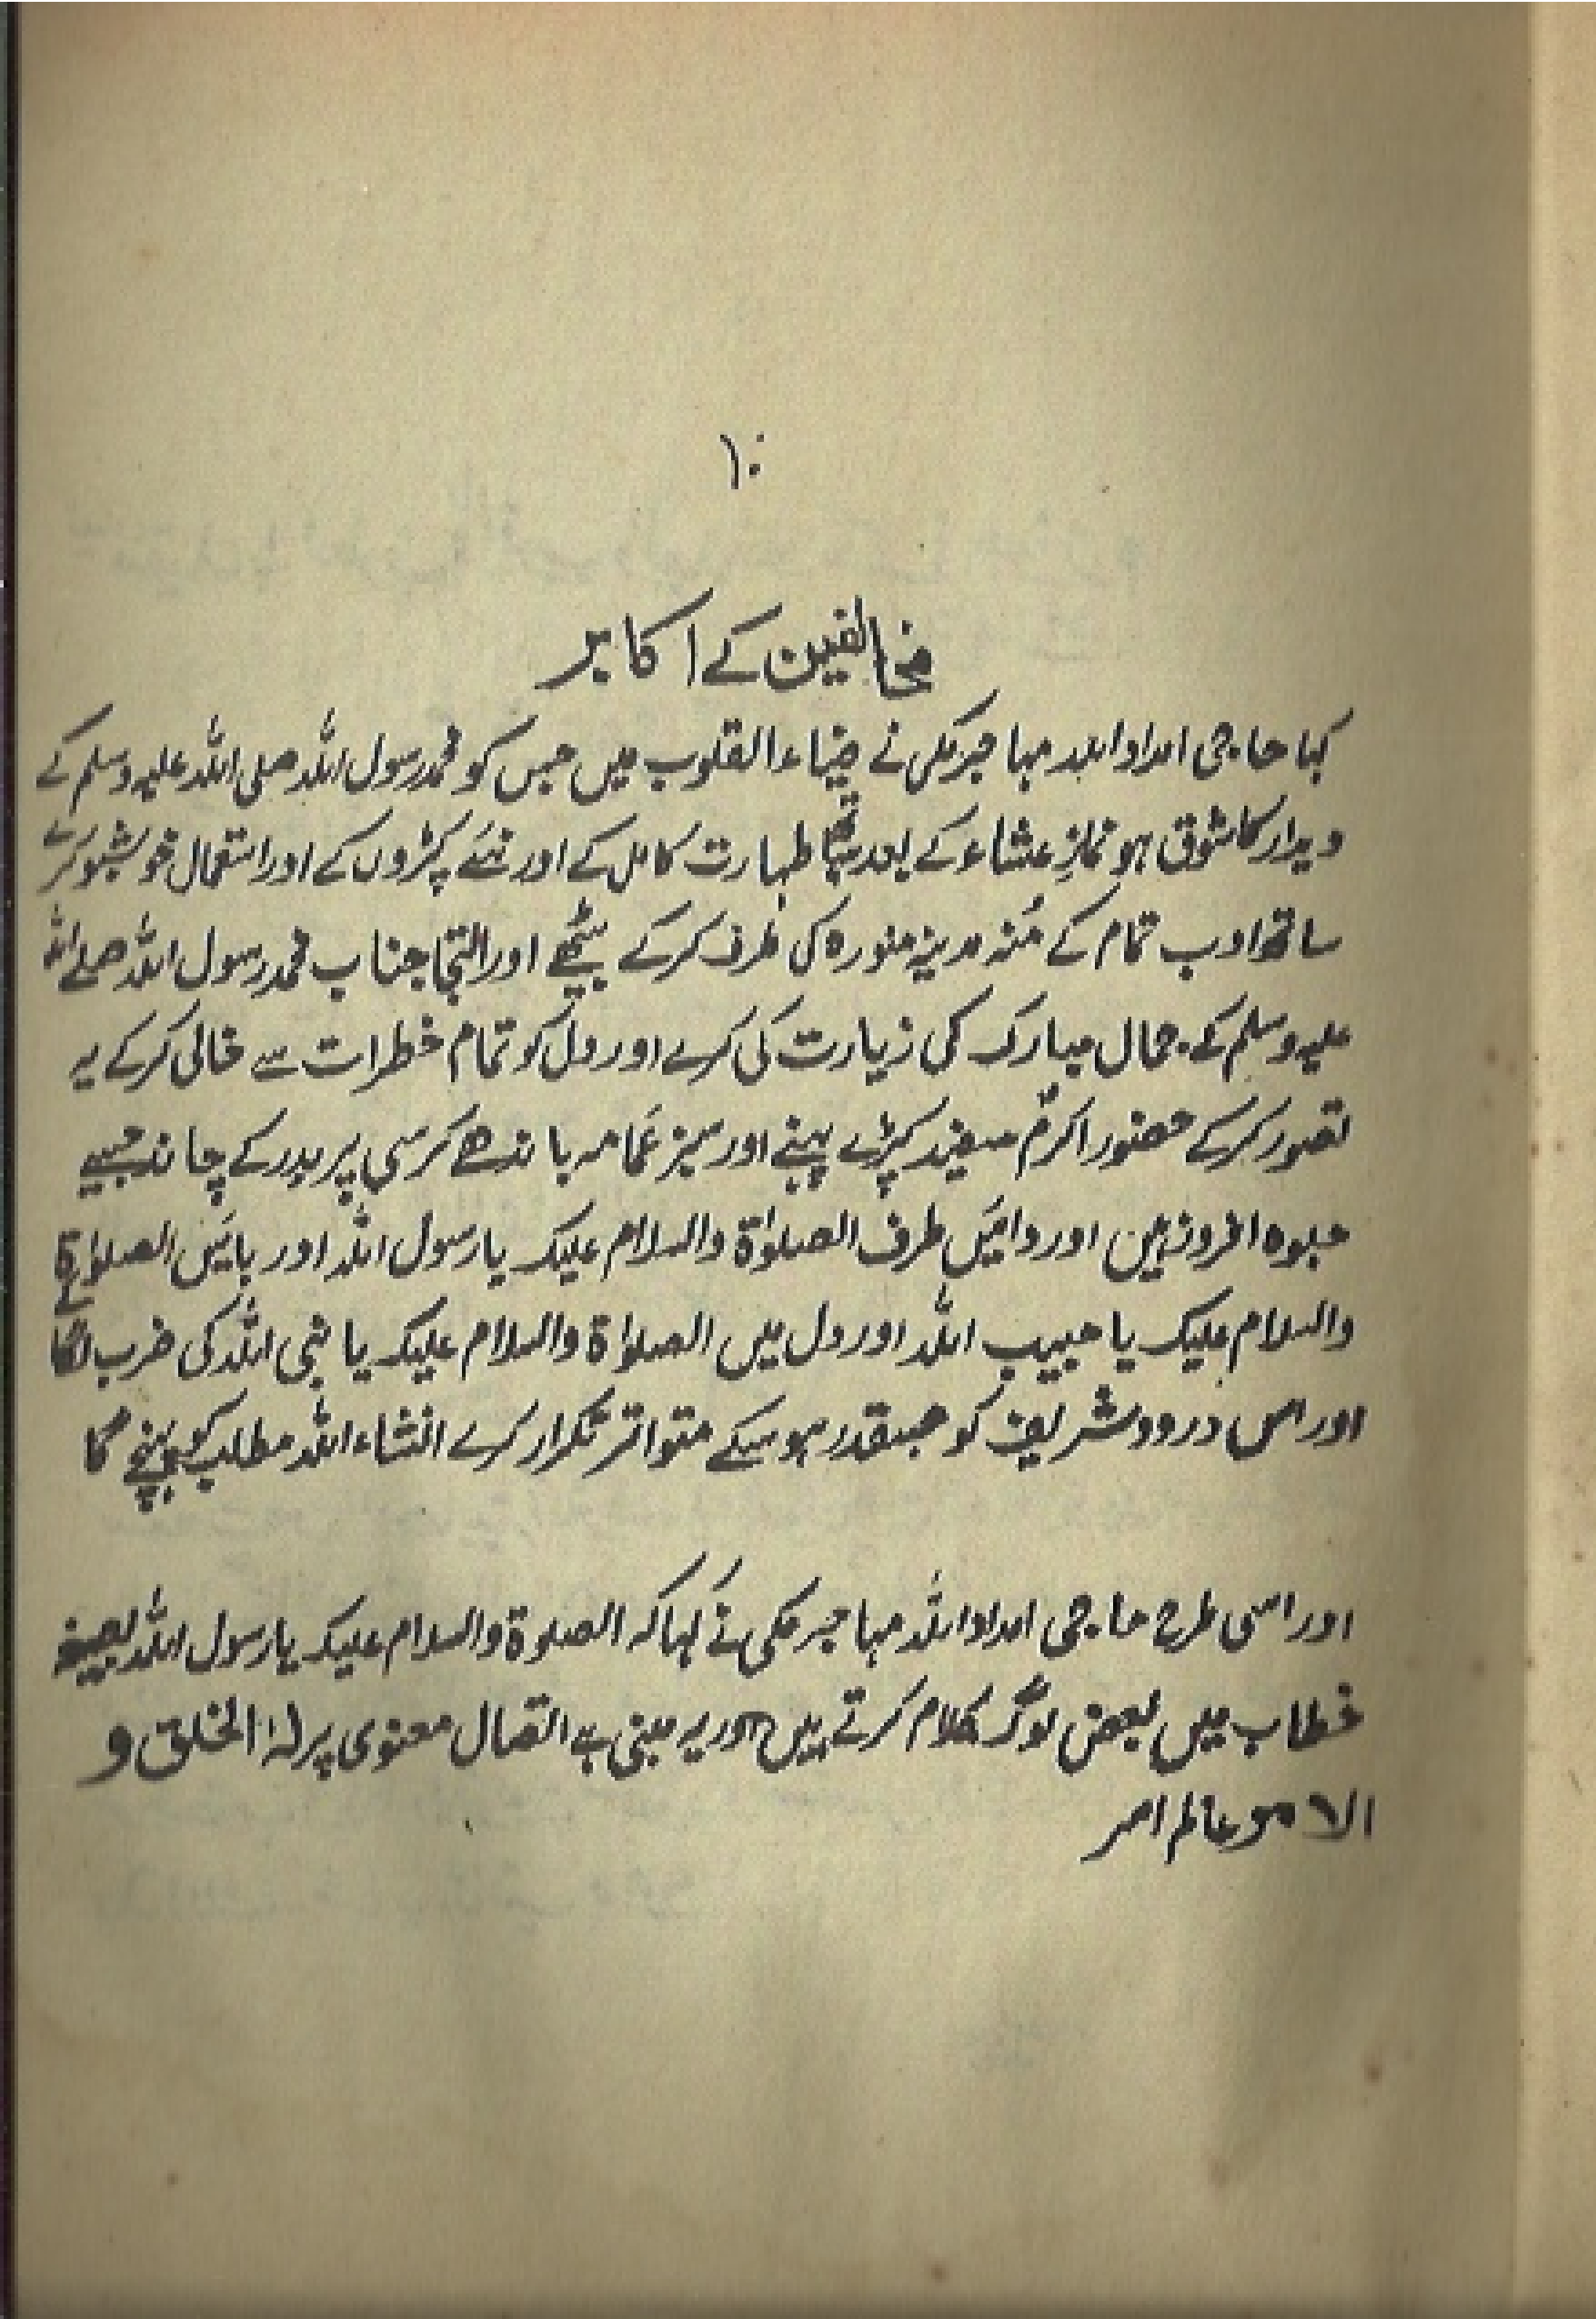 ۱۰
مخالفین کے اکابر
کہا حاجی امداد اللہ مہاجر مکی نے ضیاء القلوب میں جس کو محمد رسول اللہ صلی اللہ علیہ وسلم کے
دیدار کا شوق ہو نمازِ عشاء کے بعد ساتھ طہارت کامل کے اور نئے کپڑوں کے اور استعمال خوشبو کرے
ساتھ ادب تمام کے مُنہ مدینہ منورہ کی طرف کرکے بیٹھے اور التجا جناب محمد رسول اللہ صلے اللہ
علیہ وسلم کے جمال مبارک کی زیارت کی کرے اور دل کو تمام خطرات سے خالی کرکے یہ
تصور کرکے حضور اکرمؐ سفید کپڑے پہنے اور سبز عمامہ باندھے کرسی پر بدر کے چاند جیسے
جلوہ افروز ہیں اور دائیں طرف الصلوٰۃ والسلام علیک یا رسول اللہ اور بائیں الصلوٰۃ
والسلام علیک یا حبیب اللہ اور دل میں الصلوٰۃ والسلام علیک یا نبی اللہ کی ضرب لگائے
اور اس درود شریف کو جسقدر ہوسکے متواتر تکرار کرے انشاء اللہ مطلب کو پہنچے گا
اور اسی طرح حاجی امداد اللہ مہاجر مکی نے کہا کہ الصلوۃ والسلام علیک یا رسول اللہ بصیغہ
خطاب میں بعض لوگ کلام کرتے ہیں اور یہ مبنی ہے اتصال معنوی پر لہٗ الخلق و
الامر عالم امر